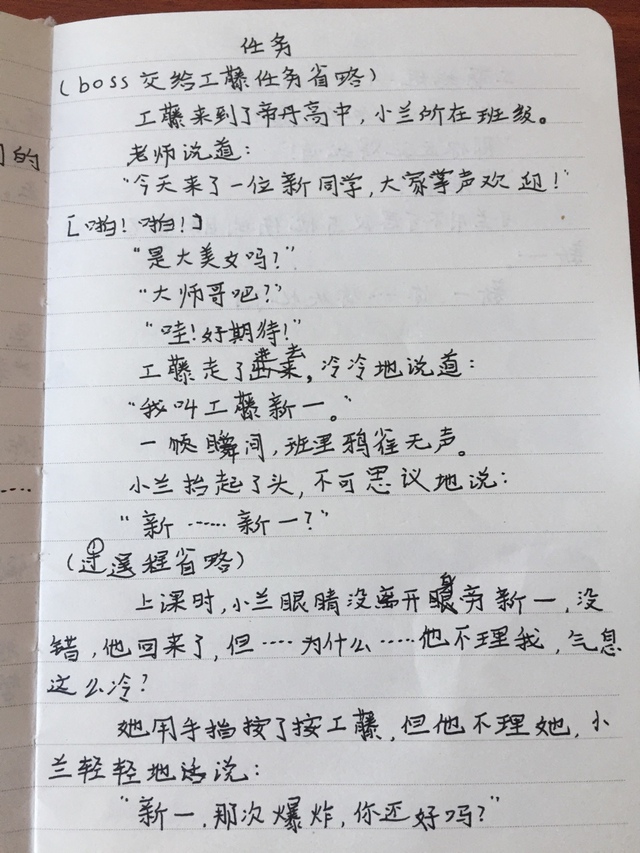 任务
(boss交给工藤任务省略)
工藤来到了帝丹高中,小兰所在班级。
老师说道:
"今天来了一位新同学,大家掌声欢迎!"
[啪!啪!]
"是大美女吗?"
"大帅哥吧?"
"哇!好期待!"
工藤走了进去,冷冷地说道:
"我叫工藤新一。"
一顿瞬间,班里鸦雀无声。
小兰抬起了头,不可思议地说:
"新……新一?"
(过程省略)
上课时,小兰眼睛没离开身旁新一,没
错,他回来了,但……为什么……他不理我,气息
这么冷?
她用手指按了按工藤,但他不理她,小
兰轻轻地说:
"新一,那次爆炸,你还好吗?"
的
……